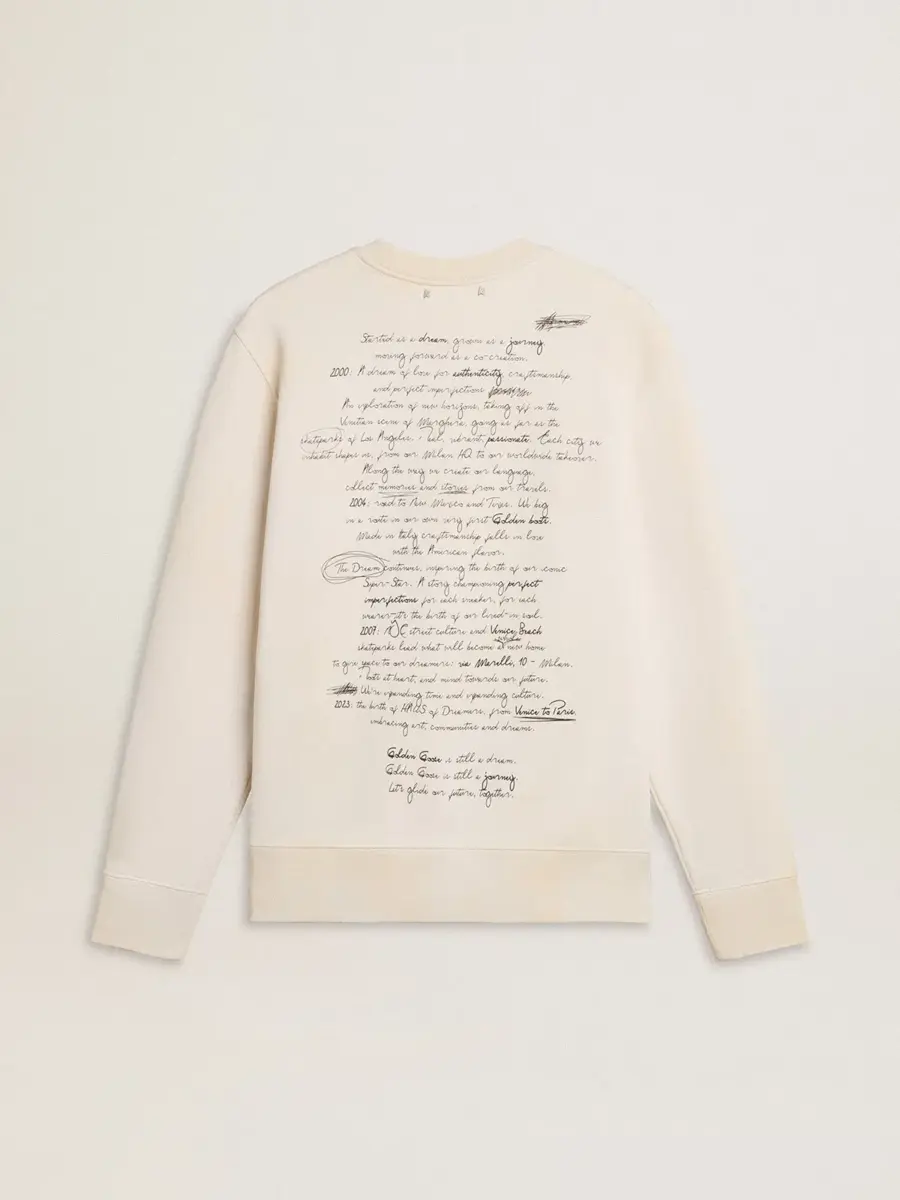 Started as a dream, grown as a journey
moving forward as a co-creation.
2000: A dream of love for authenticity, craftsmanship,
and perfect imperfections
An exploration of new horizons, taking off in the
Venetian scene of Marghera, going as far as the
skateparks of Los Angeles. Real, vibrant, passionate. Each city we
inhabit shapes us, from our Milan HQ to our worldwide takeover.
Along the way we create our language,
collect memories and stories from our travels.
2004: road to New Mexico and Texas. We
in a route in our own very first Golden boots.
Made in Italy craftsmanship falls in love
with the American flavor.
The Dream continues, inspiring the birth of our iconic
Super-Star. A story championing perfect
imperfections for each sneaker, for each
wearer the birth of our lived-in soul.
2007: street culture and Venice Beach
skateparks lead what will become new home
to give space to our dreamers: via 10 - Milan.
at heart, and mind towards our future.
We're expanding time and expanding culture.
2023: the birth of HAUS of Dreamers, from Venice to Paris.
embracing art, communities and dreams.
Golden Goose is still a dream.
Golden Goose is still a journey.
Let's glide our future, together.